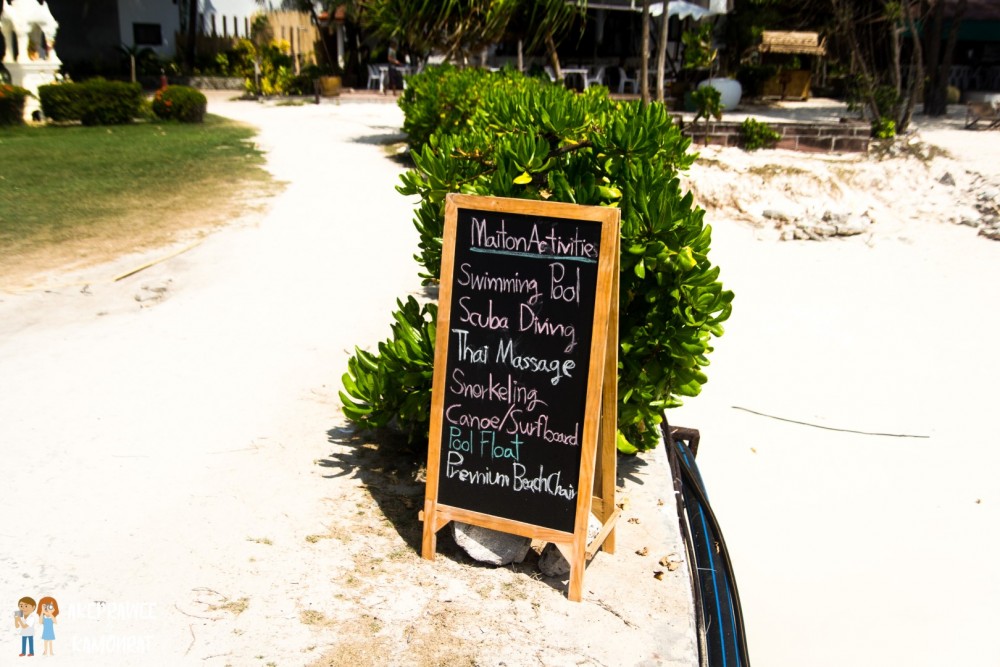 Maiton Activitie
Swimming Pool
Scuba Diving
Thai Massage
Snorkeling
Canoe/Surfboard
Pool Float
Premium Beach Chair